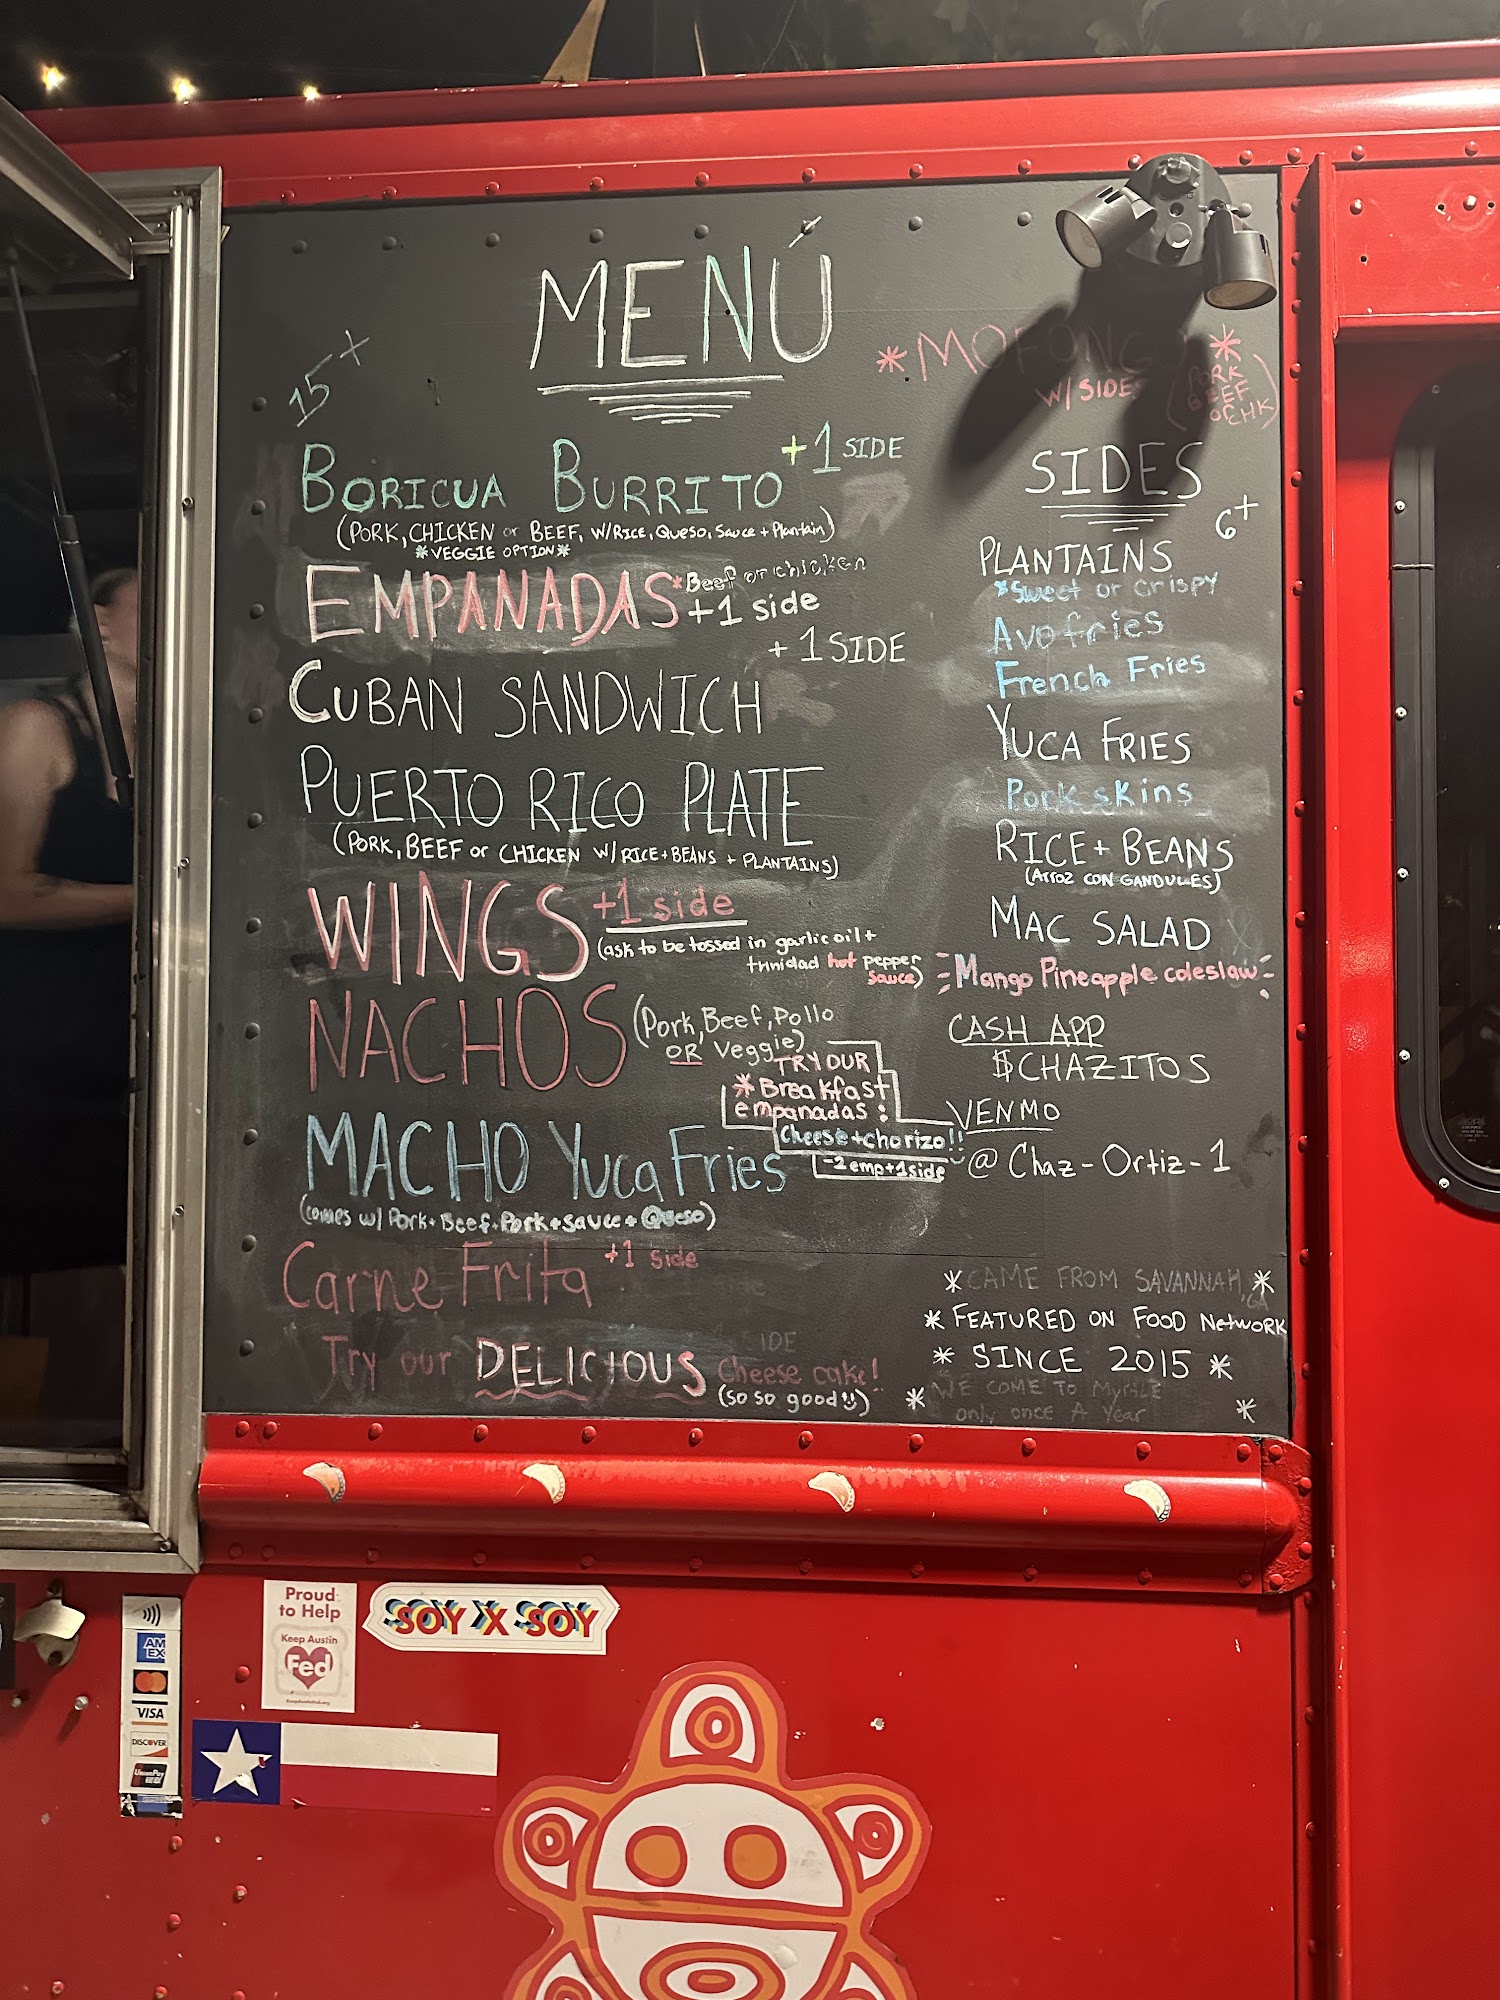 MENÚ
15+
BORICUA BURRITO +1 SIDE
(PORK, CHICKEN or BEEF, W/RICE, Queso, Sauce + Plantain)
*VEGGIE OPTION*
EMPANADAS *Beef or chicken
+1 side
+1 SIDE
CUBAN SANDWICH
PUERTO RICO PLATE
(PORK, BEEF or CHICKEN W/RICE+BEANS + PLANTAINS)
WINGS +1 side
(ask to be tossed in garlic oil +
trinidad hot pepper
sauce)
NACHOS (Pork, Beef, Pollo
OR Veggie)
TRY OUR
*Breakfast
empanadas:
Cheese+chorizo!!
-2 emp+1side
MACHO Yuca Fries
(comes w/ Pork+Beef+Pork+sauce+Queso)
Carne Frita +1 side
Try our DELICIOUS Cheese cake!
(so so good!)
*MOFONGO*
W/ SIDE
(PORK
BEEF
OCHK)
SIDES
6+
PLANTAINS
*Sweet or crispy
Avofries
French Fries
YUCA FRIES
Pork skins
RICE + BEANS
(Arroz CON GANDULES)
MAC SALAD
Mango Pineapple coleslaw
CASH APP
$CHAZITOS
VENMO
@Chaz-Ortiz-1
*CAME FROM SAVANNAH, GA*
*FEATURED ON FOOD NetWORK
* SINCE 2015 *
* WE COME TO MYRTLE
only once A Year *
Proud
to Help
Keep Austin
Fed
keepaustinfed.org
SOY X SOY
AM
EX
VISA
DISCOVER
UnionPay